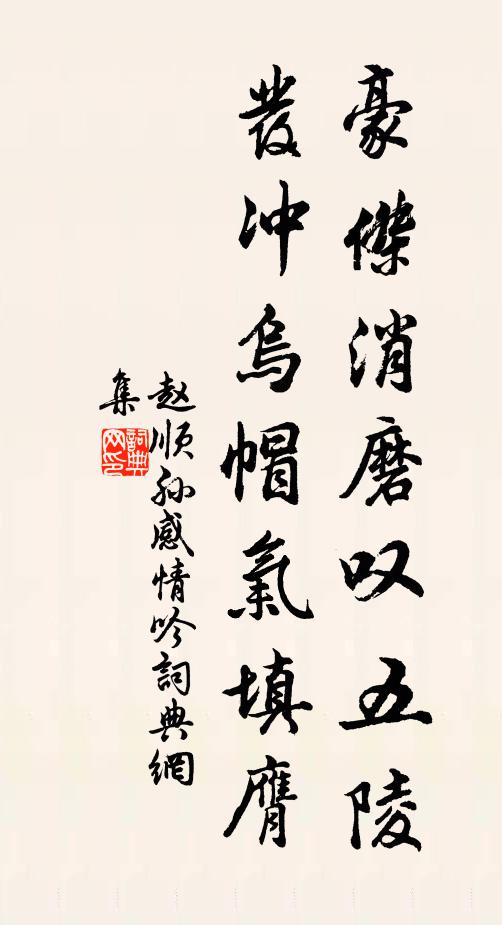 豪傑消磨叹五陵
發冲烏帽氣填膺
赵順孙感情吟詞典網
集
詞典網印